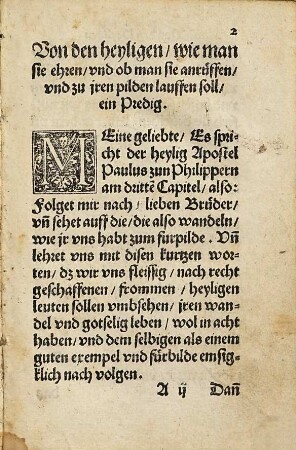 2
Von den heyligen / wie man
sie ehren / vnd ob man sie anrüffen /
vnd zu jren pilden lauffen soll /
ein Predig.
MEine geliebte / Es spri-
cht der heylig Apostel
Paulus zun Philippern
am drittē Capitel / also:
Folget mir nach / lieben Brüder /
vn̄ sehet auff die / die also wandeln /
wie jr vns habt zum fürpilde. Vn̄
lehret vns mit disen kurtzen wor-
ten / dz wir vns fleissig / nach recht
geschaffenen / frommen / heyligen
leuten sollen vmbsehen / jren wan-
del vnd gotselig leben / wol in acht
haben / vnd dem selbigen als einem
guten exempel vnd fürbilde emsig-
klich nach volgen.
A ij Dan̄